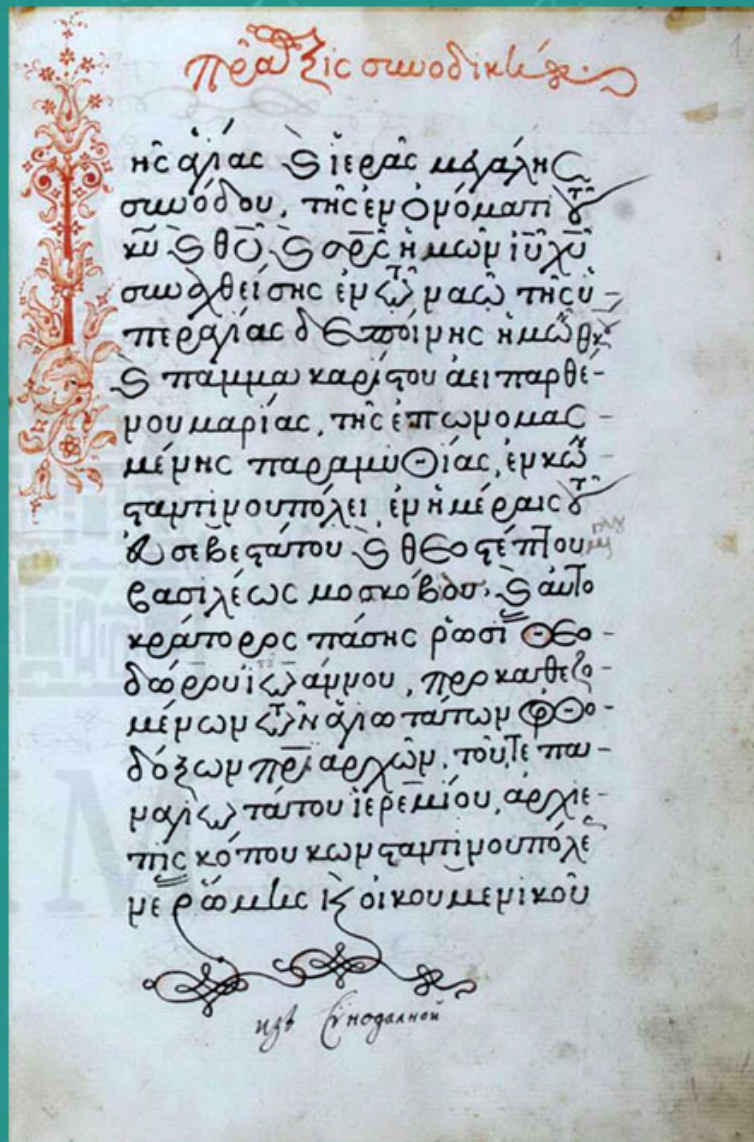 πρᾶξις συνοδική
ης ἁγίας καὶ ἱερᾶς μεγάλης
συνόδου, τῆς ἐν ὀνόματι τοῦ
κυ̅ καὶ θυ̅ καὶ σρ̅ς ἡμῶν ιυ̅ χυ̅
συναχθείσης ἐν τῷ ναῷ τῆς ὑ-
περαγίας δεσποίνης ἡμῶν θκου
καὶ παμμακαρίστου ἀειπαρθέ-
νου μαρίας, τῆς ἐπωνομασ-
μένης παραμυθίας, ἐν κων
σταντινουπόλει ἐν ἡμέραις τοῦ
εὐσεβεστάτου καὶ θεοστέπτου
βασιλέως μοσκόβου, καὶ αὐτο
κράτορος πάσης ρωσί Θεο-
δώρου ἰωάννου, προκαθεζο
μένων τῶν ἁγιωτάτων ὀρθο-
δόξων πριαρχῶν, τοῦ, τε πα-
ναγιωτάτου ἱερεμίου, ἀρχιε-
πισκόπου κωνσταντινουπόλε
νέ ῥώμης καὶ οἰκουμενικοῦ
изъ Синодалной
1